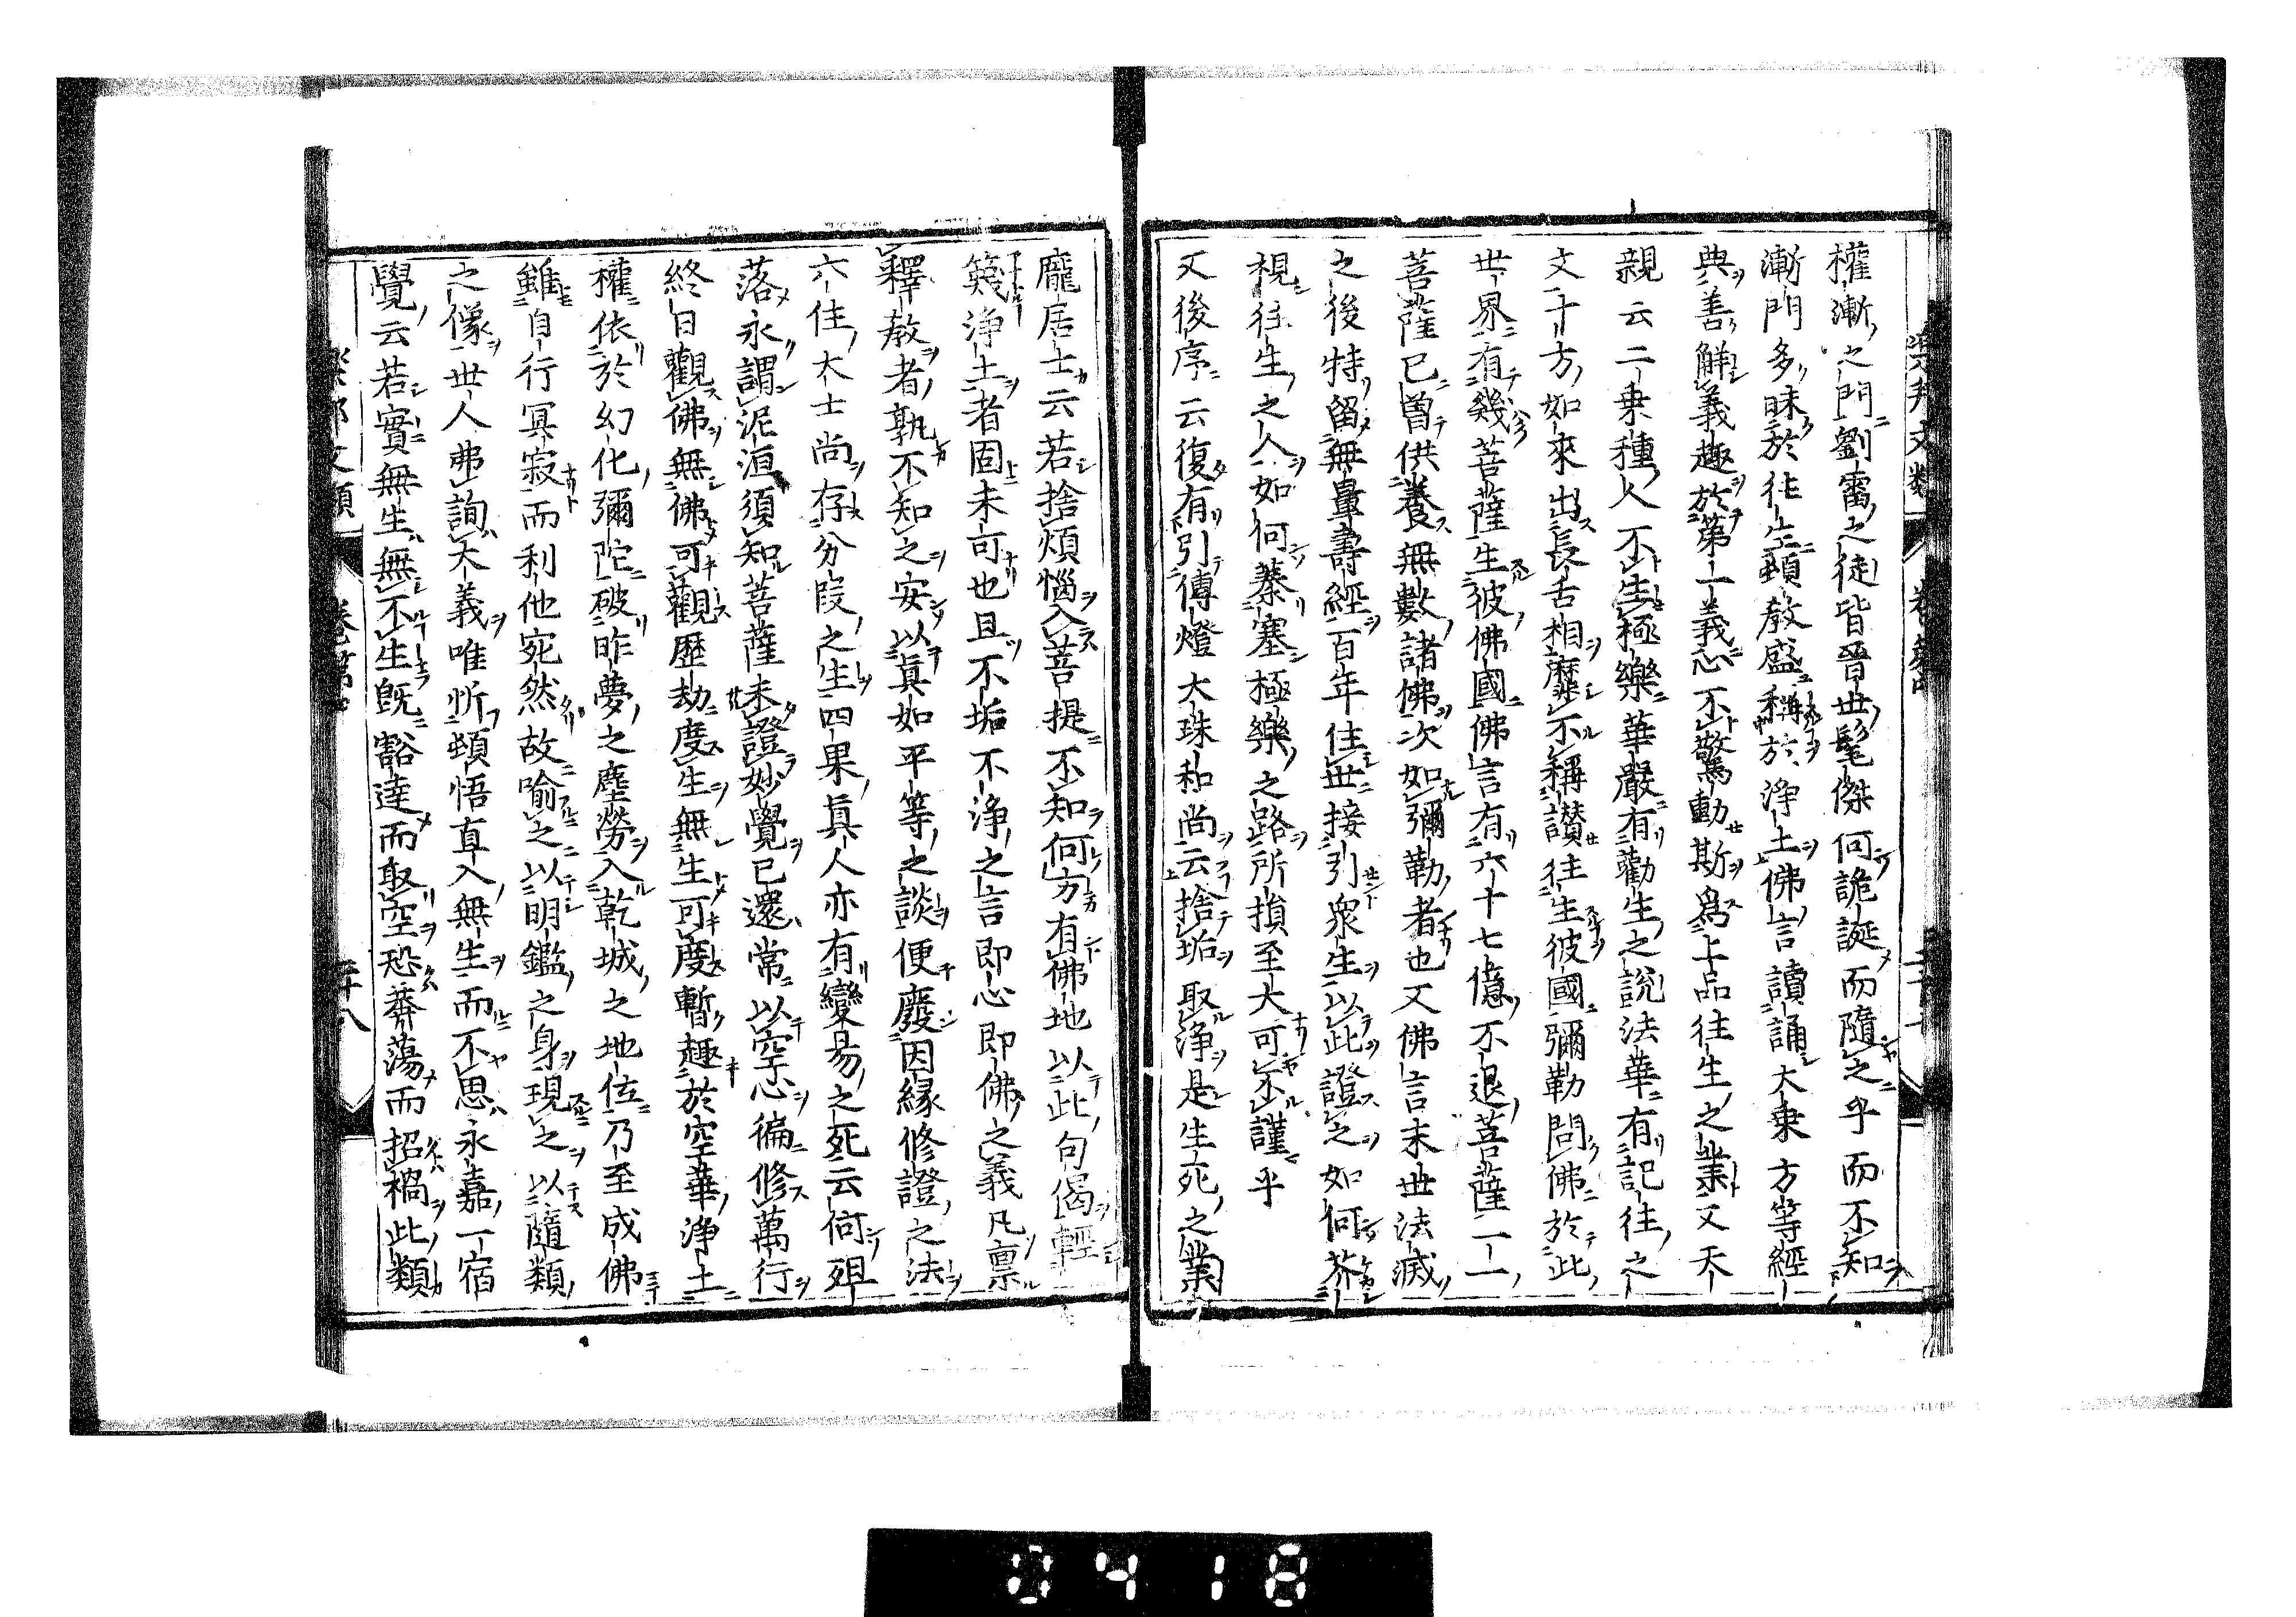 權漸之門劉雷之徒皆晉世髦傑何詭誕而隨之乎而不知
漸門多昧於往生頓教盛稱於淨土佛言讀誦大乘方等經
典善解義趣於第一義心不驚動斯爲上品往生之業又天
親云二乘種人不生極樂華嚴有勸生之說法華有記往之
文十方如來出長舌相靡不稱讃往生彼國彌勒問佛於此
世界有幾菩薩生彼佛國佛言有六十七億不退菩薩一一
菩薩已曽供養無數諸佛次如彌勒者也又佛言末世法滅
之後特留無量壽經百年住世接引衆生以此證之如何芥
視往生之人如何蓁塞極樂之路所損至大可不謹乎
又後序云復有引傳燈大珠和尚云捨垢取淨是生死之業
龐居士云若捨煩惱入菩提不知何方有佛地以此句偈輕
篾淨土者固未可也且不垢不淨之言即心即佛之義凡禀
釋敎者孰不知之安以眞如平等之談便廢因緣修證之法
六住大士尚存分段之生四果眞人亦有變易之死云何殂
落永謂泥洹須知菩薩未證妙覺已還常以空心徧修萬行
終日觀佛無佛可觀歷劫度生無生可度暫趣於空華淨土
權依於幻化彌陀破昨夢之塵勞入乾城之地位乃至成佛
雖自行冥寂而利他宛然故喻之以明鑑之身現之以隨類
之像世人弗詢大義唯忻頓悟直入無生而不思永嘉一宿
覺云若實無生無不生旣豁達而取空恐莽蕩而招禍此類
樂邦文類 卷第四 三十八